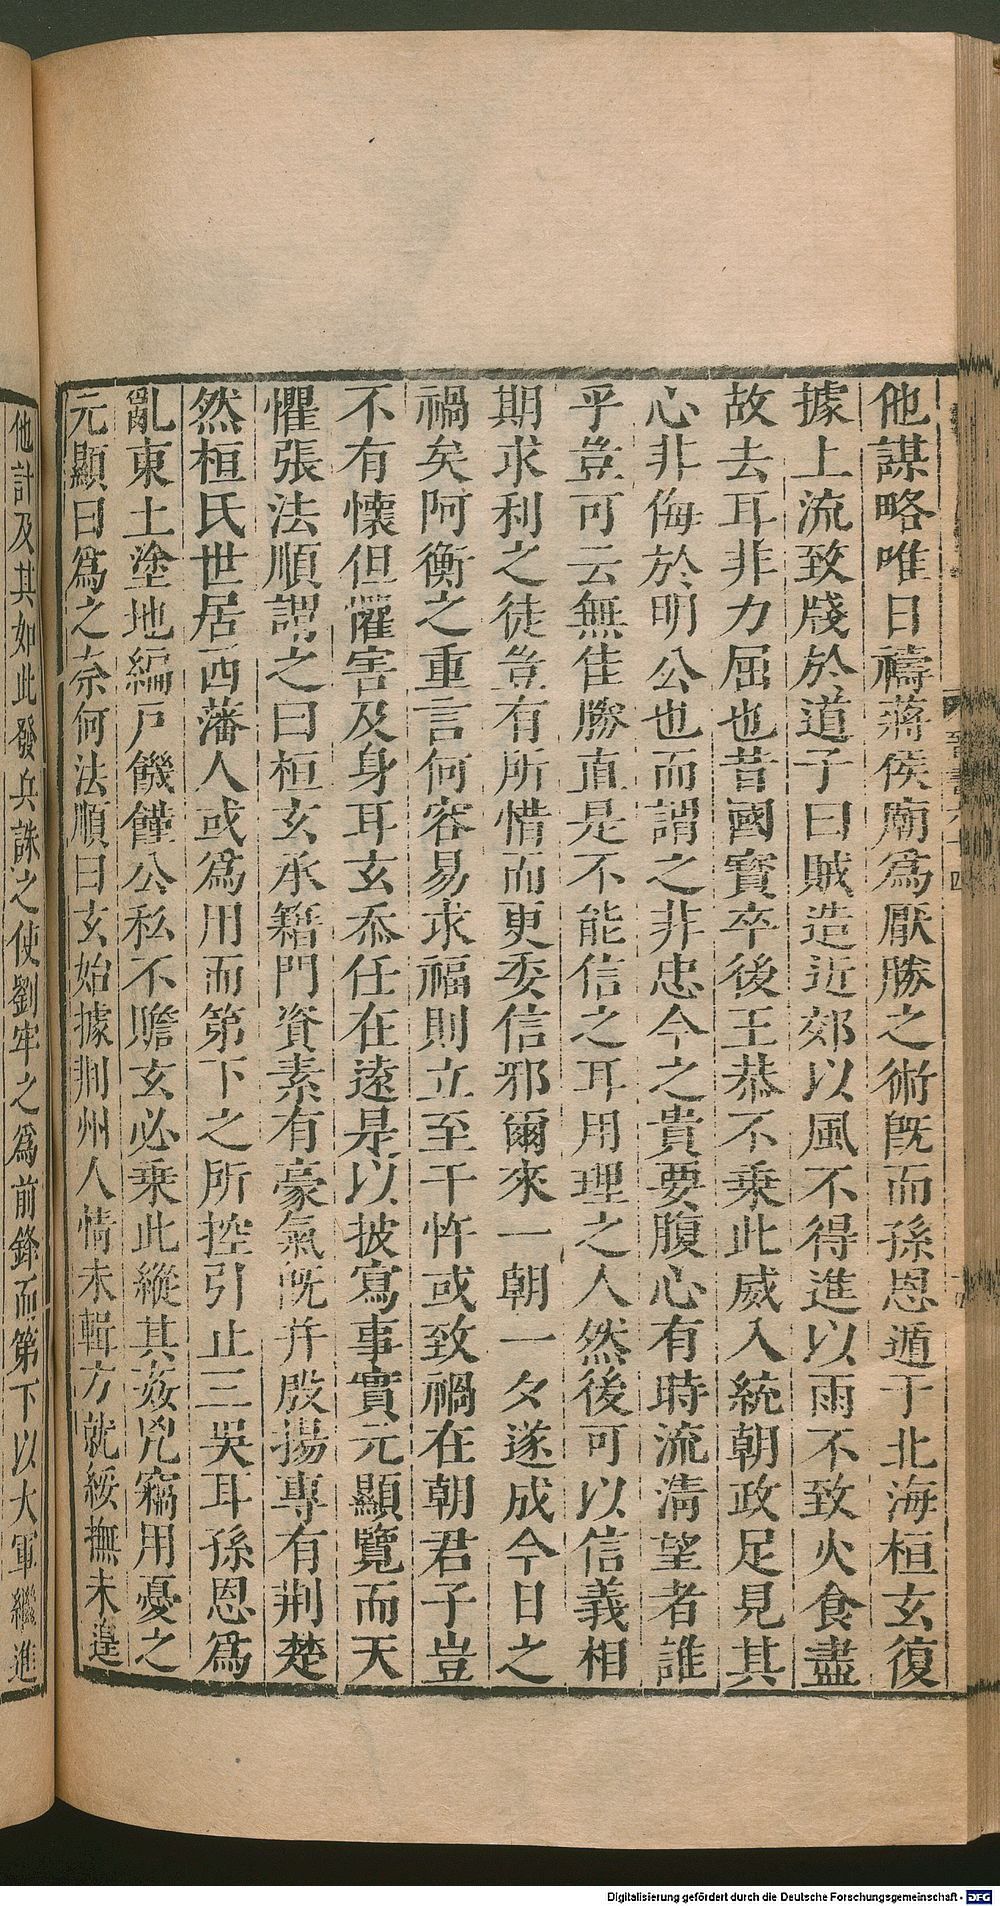 他謀略唯日禱蔣侯廟爲厭勝之術旣而孫恩遁于北海桓玄復
據上流致牋於道子曰賊造近郊以風不得進以雨不致火食盡
故去耳非力屈也昔國寶卒後王恭不乗此威入統朝政足見其
心非侮於明公也而謂之非忠今之貴要腹心有時流淸望者誰
乎豈可云無佳勝直是不能信之耳用理之人然後可以信義相
期求利之徒豈有所惜而更委信邪爾來一朝一夕遂成今日之
禍矣阿衡之重言何容易求福則立至干忤或致禍在朝君子豈
不有懷但懼害及身耳玄忝任在遠是以披寫事實元顯覽而天
懼張法順謂之曰桓玄承籍門資素有豪氣旣并殷揚專有荆楚
然桓氏世居西藩人或爲用而第下之所控引止三吳耳孫恩爲
亂東土塗地編戸饑饉公私不贍玄必乗此縱其姦兇竊用憂之
元顯曰爲之奈何法順曰玄始據荆州人情未輯方就綏撫未遑
他計及其如此發兵誅之使劉牢之爲前鋒而第下以大軍繼進
Digitalisierung gefördert durch die Deutsche Forschungsgemeinschaft - DFG